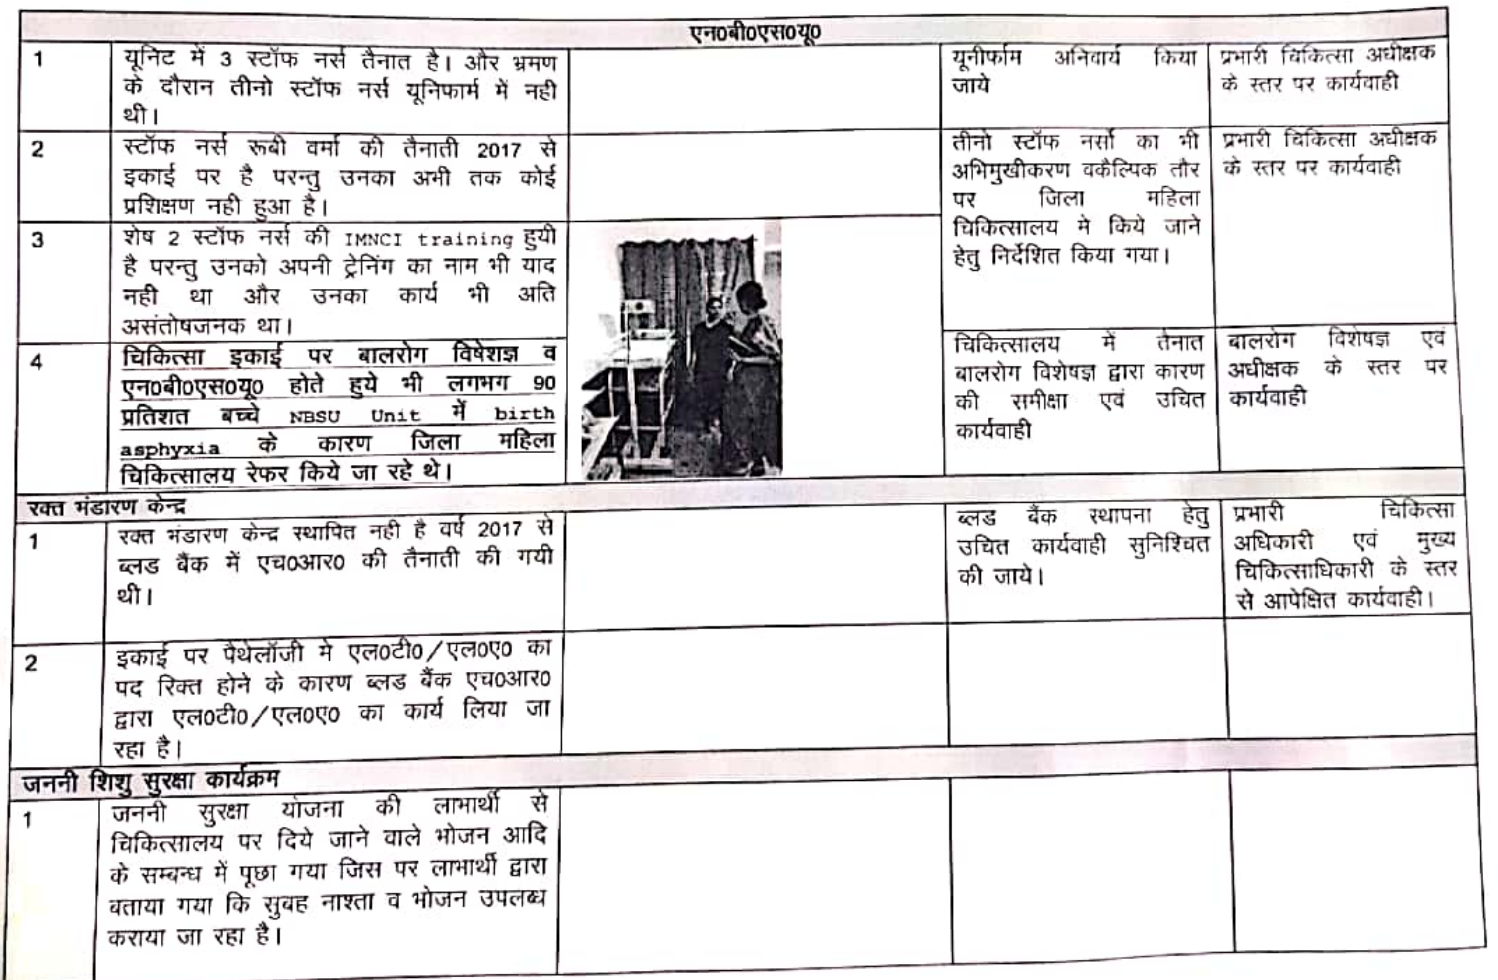 एन0बी0एस0यू0
1
यूनिट में 3 स्टॉफ नर्स तैनात है। और भ्रमण
के दौरान तीनो स्टॉफ नर्स यूनिफार्म में नही
थी।
यूनीर्फाम अनिवार्य किया
जाये
प्रभारी चिकित्सा अधीक्षक
के स्तर पर कार्यवाही
2
स्टॉफ नर्स रूबी वर्मा की तैनाती 2017 से
इकाई पर है परन्तु उनका अभी तक कोई
प्रशिक्षण नही हुआ है।
तीनो स्टॉफ नर्सो का भी
अभिमुखीकरण वकैल्पिक तौर
पर जिला महिला
चिकित्सालय मे किये जाने
हेतु निर्देशित किया गया।
प्रभारी चिकित्सा अधीक्षक
के स्तर पर कार्यवाही
3
शेष 2 स्टॉफ नर्स की IMNCI training हुयी
है परन्तु उनको अपनी ट्रेनिंग का नाम भी याद
नही था और उनका कार्य भी अति
असंतोषजनक था।
4
चिकित्सा इकाई पर बालरोग विषेशज्ञ व
एन0बी0एस0यू0 होते हुये भी लगभग 90
प्रतिशत बच्चे NBSU Unit में birth
asphyxia के कारण जिला महिला
चिकित्सालय रेफर किये जा रहे थे।
चिकित्सालय में तैनात
बालरोग विशेषज्ञ द्वारा कारण
की समीक्षा एवं उचित
कार्यवाही
बालरोग विशेषज्ञ एवं
अधीक्षक के स्तर पर
कार्यवाही
रक्त भंडारण केन्द्र
1
रक्त भंडारण केन्द्र स्थापित नही है वर्ष 2017 से
ब्लड बैंक में एच0आर0 की तैनाती की गयी
थी।
ब्लड बैंक स्थापना हेतु
उचित कार्यवाही सुनिश्चित
की जाये।
प्रभारी चिकित्सा
अधिकारी एवं मुख्य
चिकित्साधिकारी के स्तर
से आपेक्षित कार्यवाही।
2
इकाई पर पैथेलॉजी मे एल0टी0/एल0ए0 का
पद रिक्त होने के कारण ब्लड बैंक एच0आर0
द्वारा एल0टी0/एल0ए0 का कार्य लिया जा
रहा है।
जननी शिशु सुरक्षा कार्यक्रम
1
जननी सुरक्षा योजना की लाभार्थी से
चिकित्सालय पर दिये जाने वाले भोजन आदि
के सम्बन्ध में पूछा गया जिस पर लाभार्थी द्वारा
बताया गया कि सुबह नाश्ता व भोजन उपलब्ध
कराया जा रहा है।